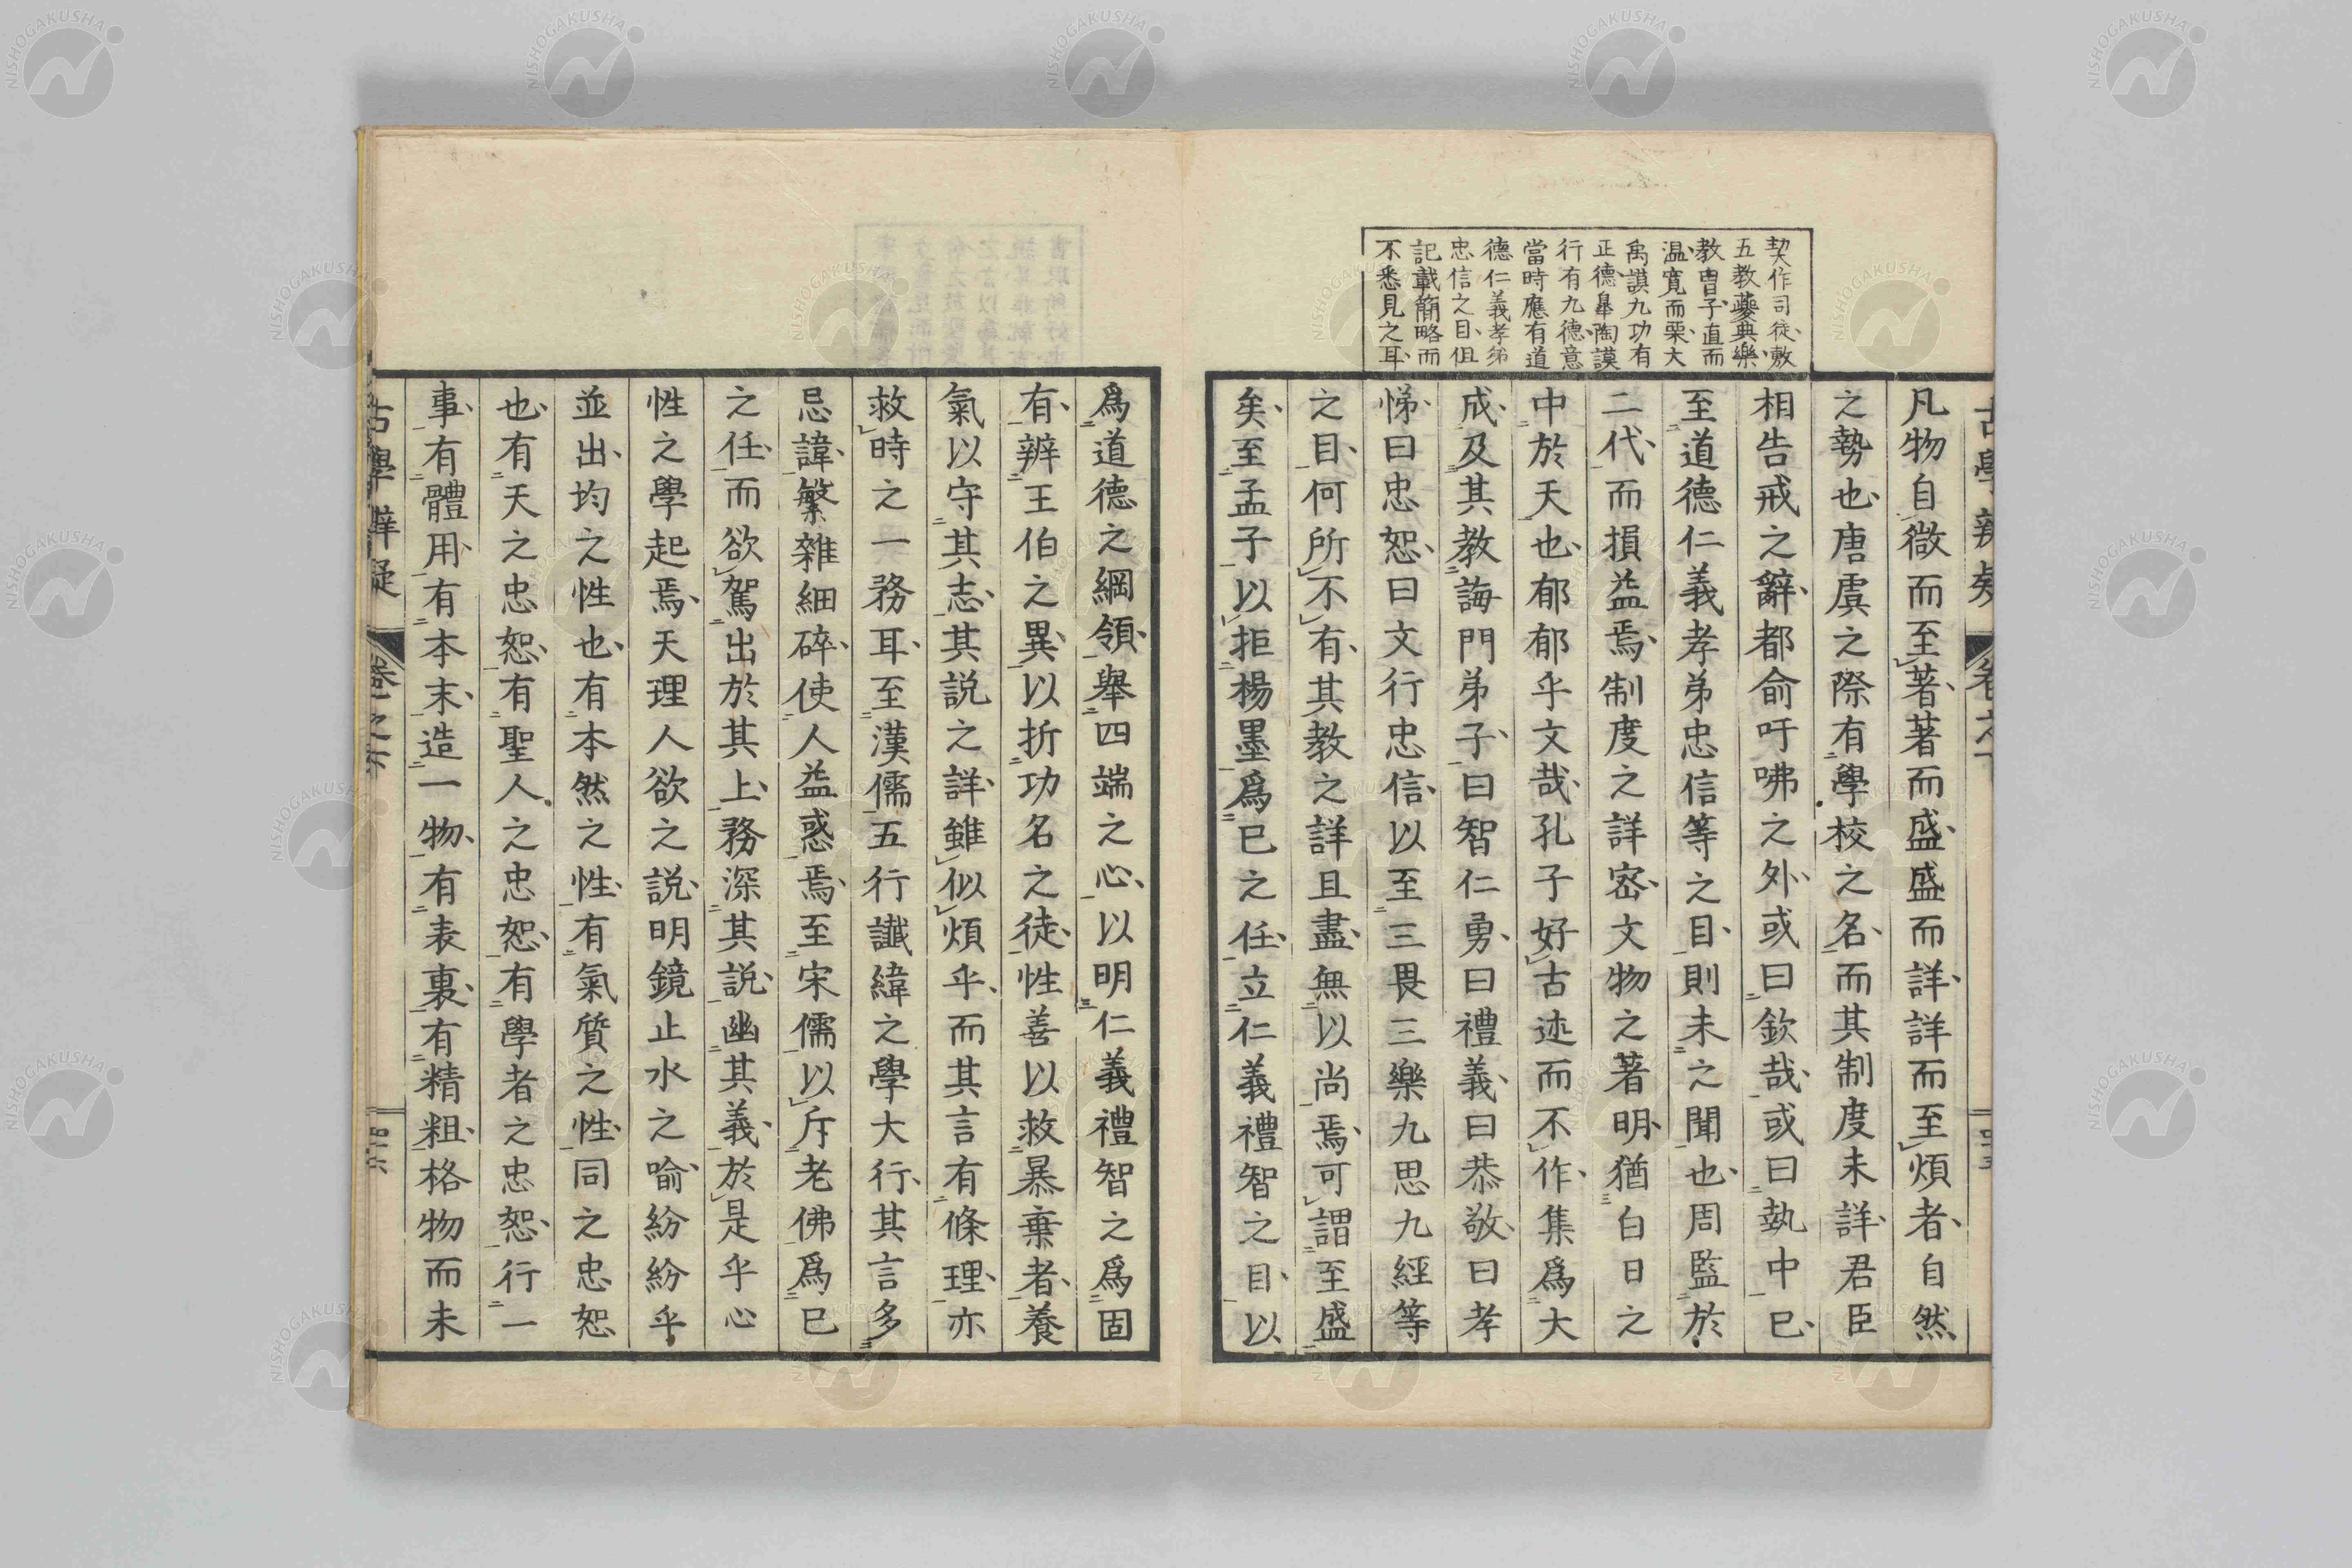 契作司徒敷
五教夔典樂
教冑子直而
温寛而栗大
禹謨九功有
正德皐陶謨
行有九德意
當時應有道
德仁義孝弟
忠信之目但
記載簡略而
不悉見之耳
凡物自微而至著著而盛盛而詳詳而至煩者自然
之勢也唐虞之際有學校之名而其制度未詳君臣
相告戒之辭都俞吁咈之外或曰欽哉或曰執中已
至道德仁義孝弟忠信等之目則未之聞也周監於
二代而損益焉制度之詳密文物之著明猶白日之
中於天也郁郁乎文哉孔子好古述而不作集爲大
成及其教誨門弟子曰智仁勇曰禮義曰恭敬曰孝
悌曰忠恕曰文行忠信以至三畏三樂九思九經等
之目何所不有其教之詳且盡無以尚焉可謂至盛
矣至孟子以拒楊墨爲已之任立仁義禮智之目以
爲道德之綱領舉四端之心以明仁義禮智之爲固
有辨王伯之異以折功名之徒性善以救暴棄者養
氣以守其志其説之詳雖似煩乎而其言有條理亦
救時之一務耳至漢儒五行讖緯之學大行其言多
忌諱繁雜細碎使人益惑焉至宋儒以斥老佛爲已
之任而欲駕出於其上務深其説幽其義於是乎心
性之學起焉天理人欲之説明鏡止水之喻紛紛乎
並出均之性也有本然之性有氣質之性同之忠恕
也有天之忠恕有聖人之忠恕有學者之忠恕行一
事有體用有本末造一物有表裏有精粗格物而未
古學辨疑
卷之下
四六